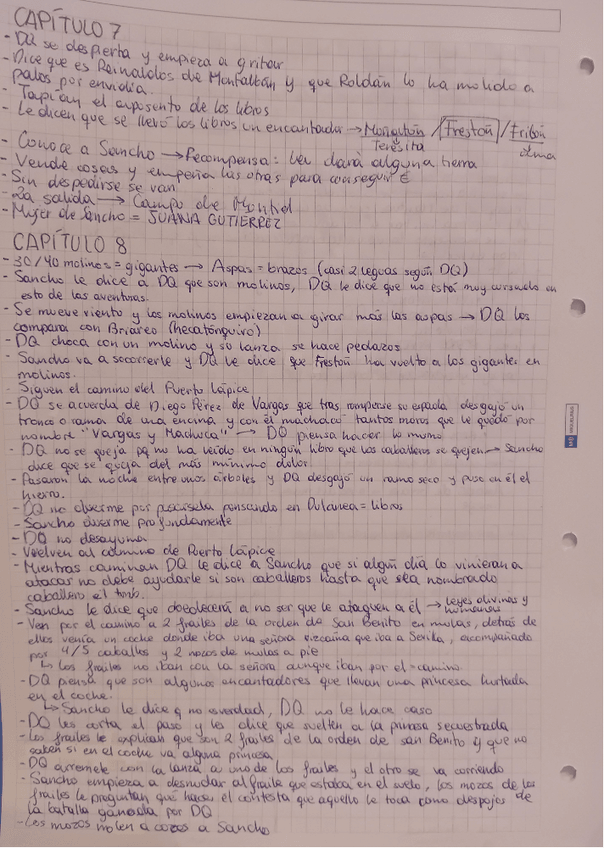 CAPÍTULO 7
- DQ se despierta y empieza a gritar
- Dice que es Reinaldos de Montalbán y que Roldán lo ha molido a
palos por envidia.
- Tapian el aposento de los libros
- Le dicen que se llevó los libros un encantador → Moñatón / Frestón / Fritón
Teresita
- Conoce a Sancho → Recompensa = Le dará alguna tierra
- Vende cosas y empeña las otras para conseguir €
- Sin despedirse se van
- 2a salida → Campo de Montiel
- Mujer de Sancho = JUANA GUTIERREZ
CAPÍTULO 8
- 30/40 molinos = gigantes → Aspas = brazos (casi 2 leguas según DQ)
- Sancho le dice a DQ que son molinos, DQ le dice que no está muy cursado en
esto de las aventuras.
- Se mueve viento y los molinos empiezan a girar más las aspas → DQ los
compara con Briareo (hecatónquiro)
- DQ choca con un molino y su lanza se hace pedazos
- Sancho va a socorrerle y DQ le dice que Frestón ha vuelto a los gigantes en
molinos.
- Siguen el camino del Puerto Lápice
- DQ se acuerda de Diego Pérez de Vargas que tras romperse su espada desgajó un
tronco o rama de una encina y con él machacó tantos moros que le quedó por
nombre "Vargas y Machuca" → DQ piensa hacer lo mismo
- DQ no se queja pq no ha leído en ningún libro que los caballeros se quejen → Sancho
dice que se queja del más mínimo dolor
- Pasaron la noche entre unos árboles y DQ desgajó un ramo seco y puso en él el
hierro.
- DQ no duerme por pensando en Dulcinea = libros
- Sancho duerme profundamente
- DQ no desayuna
- Vuelven al camino de Puerto Lápice
- Mientras caminan DQ le dice a Sancho que si algún día lo vinieran a
atacar no debe ayudarle si son caballeros hasta que sea nombrado
caballero él tmb.
- Sancho le dice que obedecerá a no ser que le ataquen a él → leyes divinas y
humanas
- Ven por el camino a 2 frailes de la orden de San Benito en mulas, detrás de
ellos venía un coche donde iba una señora vizcaína que iba a Sevilla, acompañado
por 4/5 caballos y 2 mozos de mulas a pie
↳ los frailes no iban con la señora aunque iban por el = camino.
- DQ piensa que son algunos encantadores que llevan una princesa hurtada
en el coche.
↳ Sancho le dice q no es verdad, DQ no le hace caso
- DQ les corta el paso y les dice que suelten a la princesa secuestrada
- Los frailes le explican que son 2 frailes de la orden de san Benito y que no
saben si en el coche va alguna princesa
- DQ arremete con la lanza a uno de los frailes y el otro se va corriendo
- Sancho empieza a desnudar al fraile que estaba en el suelo, los mozos de los
frailes le preguntan que hace, él contesta que aquello le toca como despojos de
la batalla ganada por DQ
- Los mozos molen a cozos a Sancho